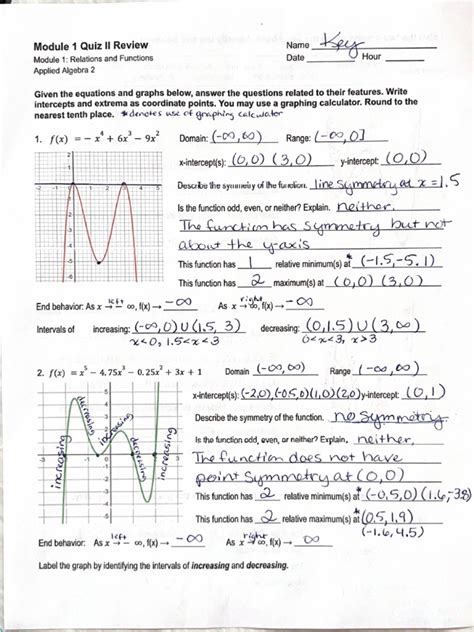 Module 1 Quiz II Review
Name Key
Module 1: Relations and Functions
Date Hour
Applied Algebra 2
Given the equations and graphs below, answer the questions related to their features. Write
intercepts and extrema as coordinate points. You may use a graphing calculator. Round to the
nearest tenth place. *denotes use of graphing calculator
1. f(x) = − x⁴ + 6x³ − 9x² Domain: (-∞,∞) Range: (-∞,0]
x-intercept(s): (0,0) (3,0) y-intercept: (0,0)
Describe the symmetry of the function. line symmetry at x = 1.5
Is the function odd, even, or neither? Explain. neither.
The function has symmetry but not
about the y-axis
This function has 1 relative minimum(s) at* (-1.5,-5.1)
This function has 2 maximum(s) at (0,0) (3,0)
End behavior: As x → left − ∞, f(x) → -∞ As x → right ∞, f(x) → -∞
Intervals of increasing: (-∞,0)U(1.5, 3) decreasing: (0,1.5)U(3,∞)
x<0, 1.5<x<3 0<x<3, x>3
2. f(x) = x⁵ − 4.75x³ − 0.25x² + 3x + 1 Domain (-∞,∞) Range (-∞,∞)
x-intercept(s): (-2,0),(-0.5,0)(1,0)(2,0) y-intercept: (0,1)
Describe the symmetry of the function. no symmetry
Is the function odd, even, or neither? Explain, neither.
The function does not have
point symmetry at (0,0)
This function has 2 relative minimum(s) at* (-0.5,0) (1.6,-3.8)
This function has 2 relative maximum(s) at* (0.5,1.9)
(-1.6,4.5)
increasing
decreasing
increasing
decreasing
increasing
End behavior: As x → left − ∞, f(x) → -∞ As x → right ∞, f(x) → ∞
Label the graph by identifying the intervals of increasing and decreasing.